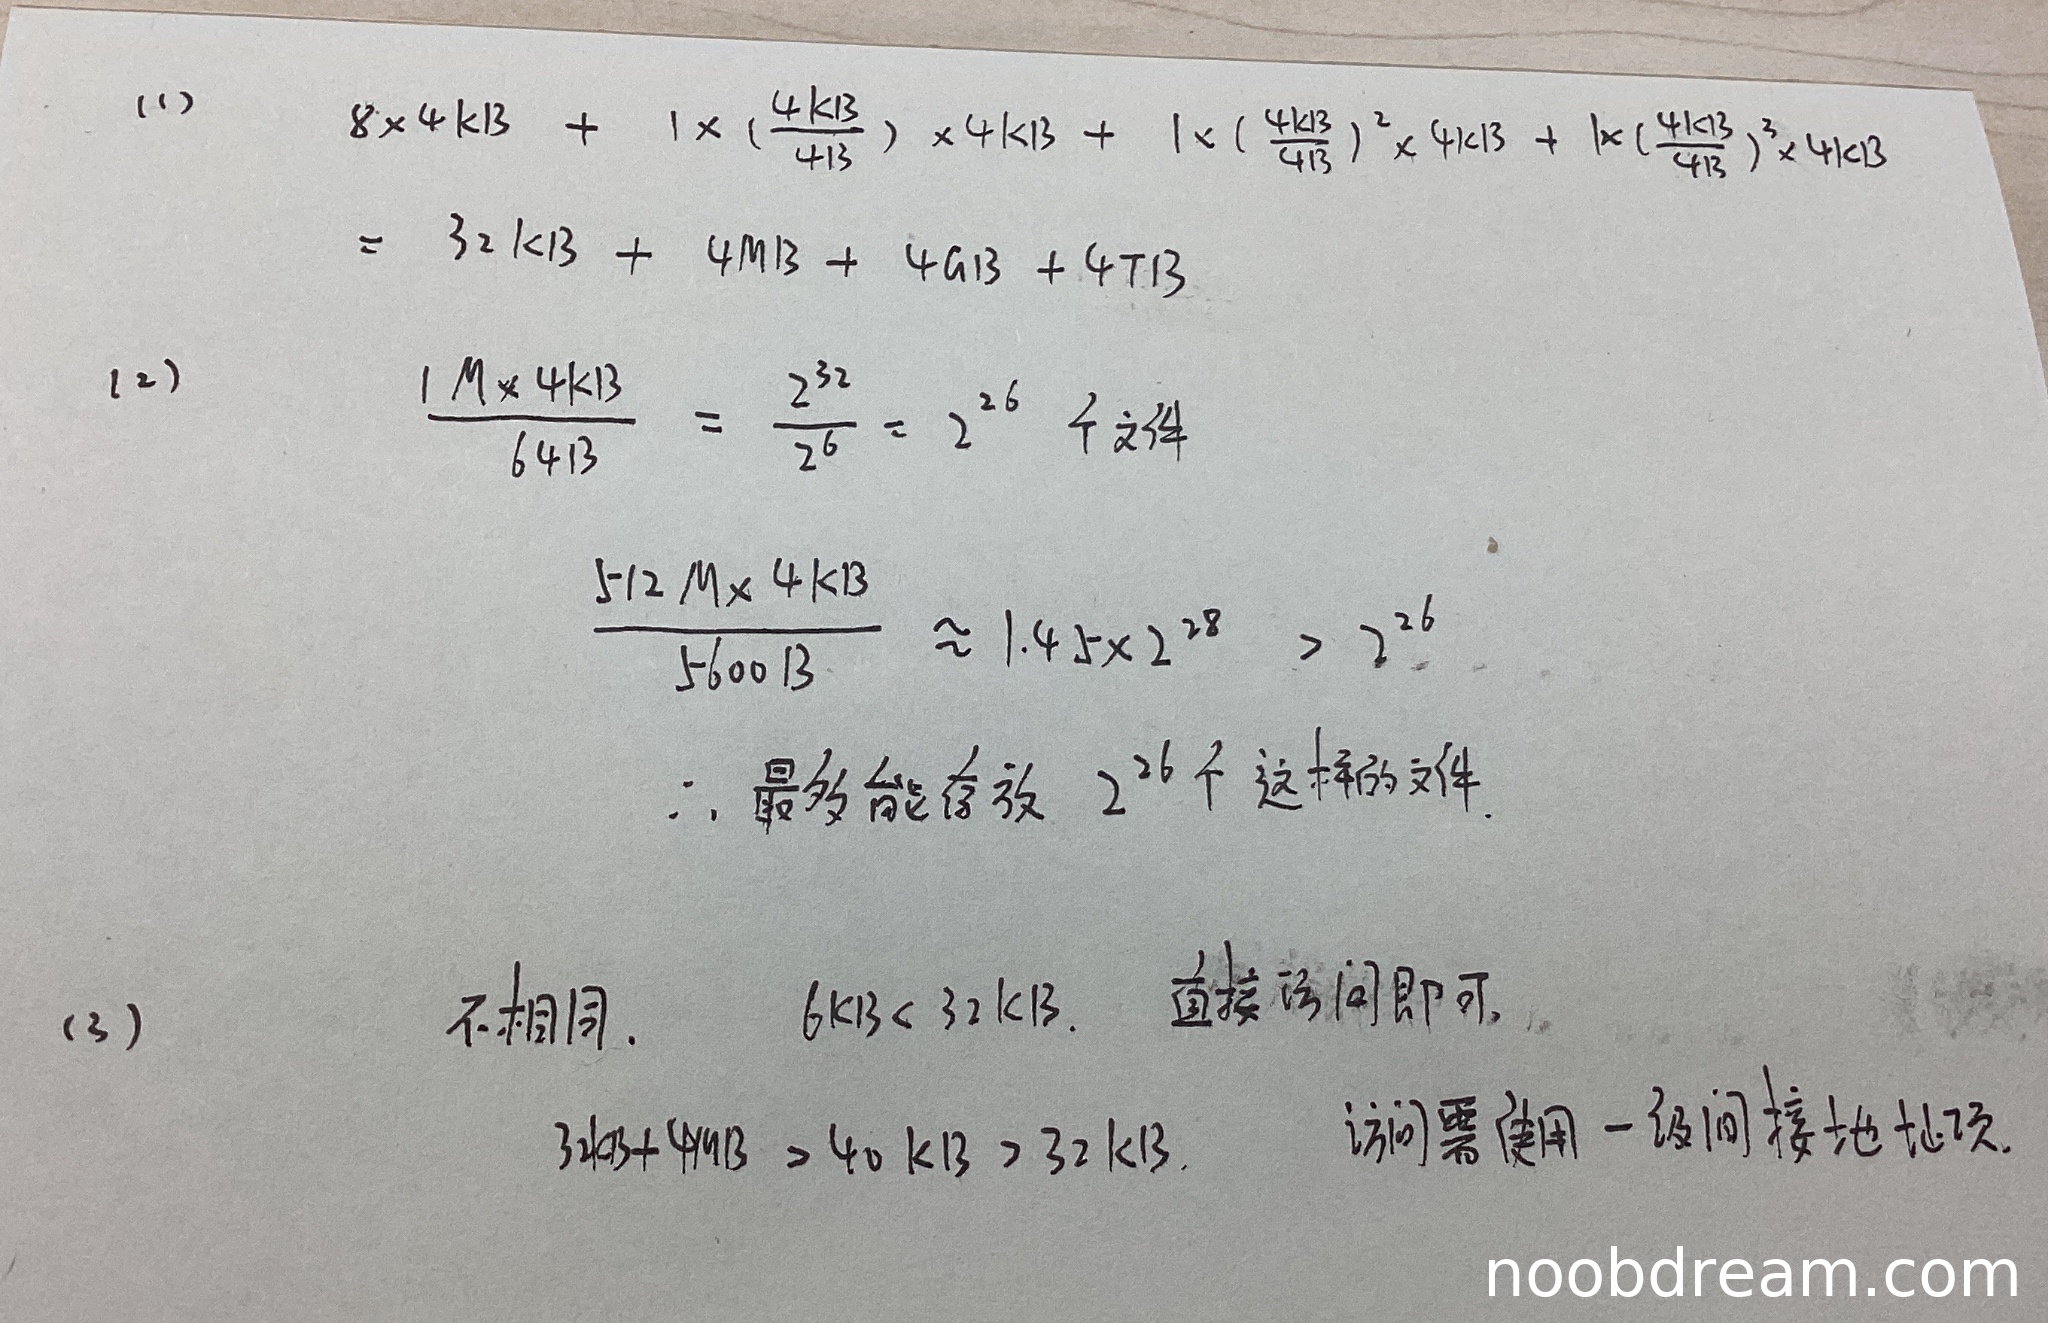 (1) 8×4KB + 1×(4KB/4B)×4KB + 1×(4KB/4B)²×4KB + 1×(4KB/4B)³×4KB
= 32KB + 4MB + 4GB + 4TB
(2) 1M×4KB/64B = 2³²/2⁶ = 2²⁶ 个文件
512M×4KB/5600B ≈ 1.45×2²⁸ > 2²⁶
∴ 最多能存放 2²⁶个这样的文件.
(3) 不相同. 6KB < 32KB. 直接访问即可.
32KB+4MB > 40KB > 32KB. 访问需使用一级间接地址项.
noobdream.com